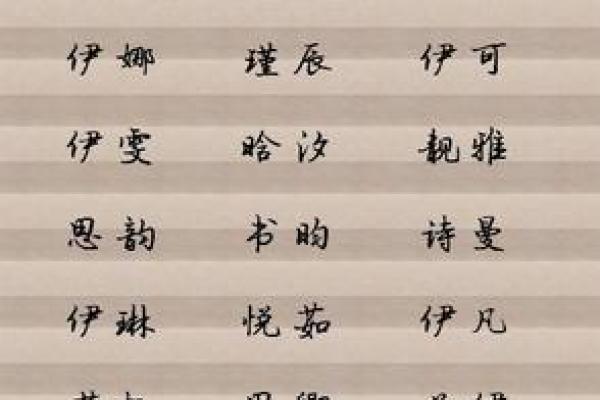 伊娜 瑾辰 伊可
伊雯 晗汐 靓雅
思韵 书昀 诗曼
伊琳 悦茹 伊凡